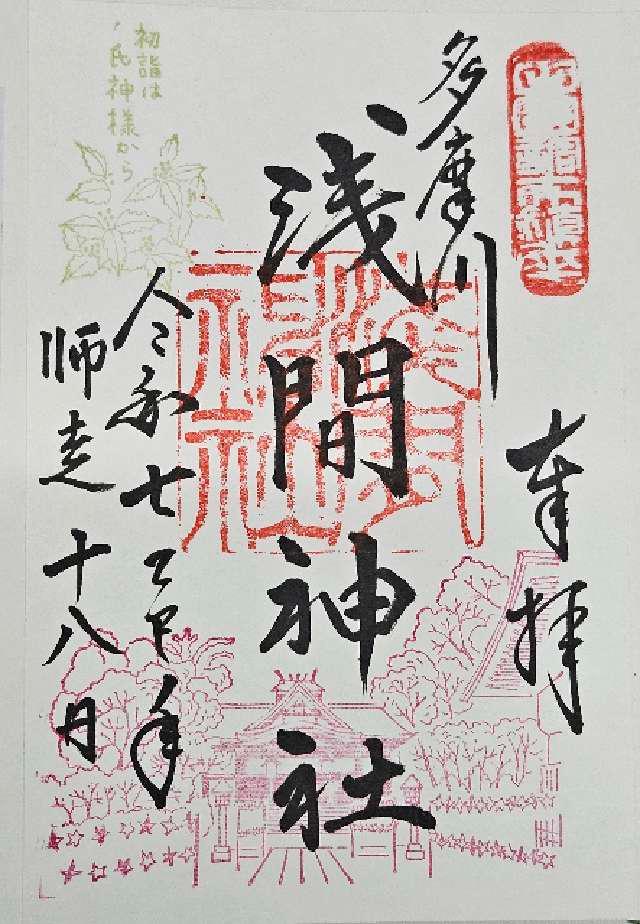 奉拝
多摩川
浅間神社
令和七乙巳年
師走十八日
初詣は
氏神様から